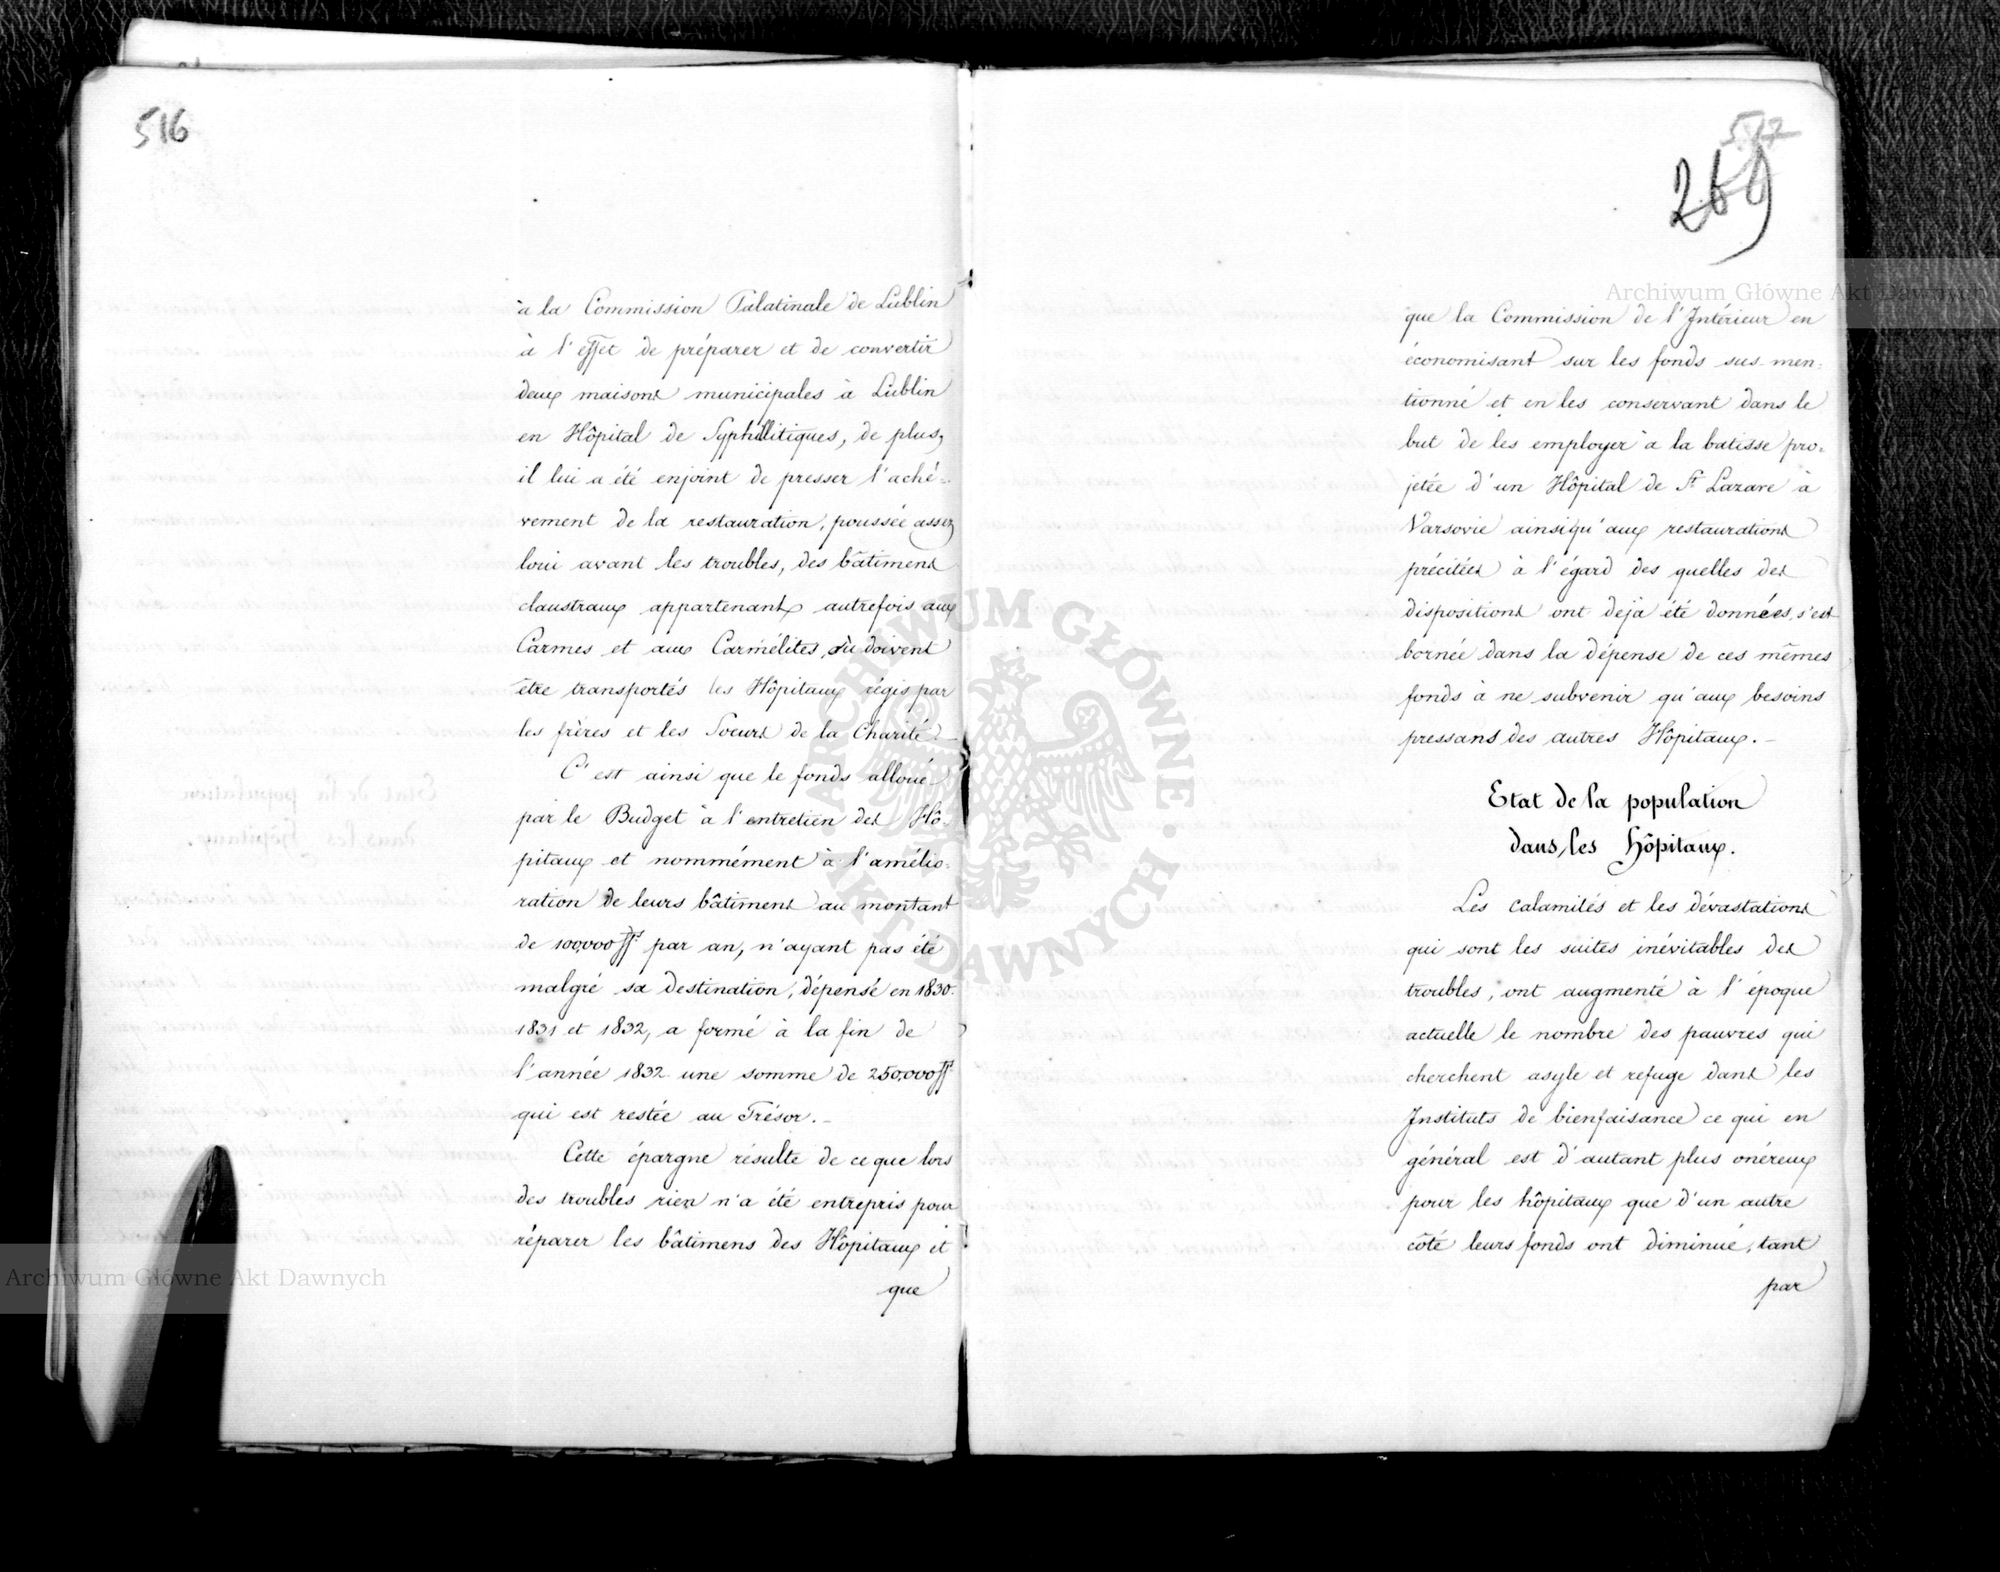 516
à la Commission Palatinale de Lublin
à l'effet de préparer et de convertir
deux maisons municipales à Lublin
en Hôpital de Syphillitiques, de plus,
il lui a été enjoint de presser l'aché=
vement de la restauration, poussée assez
loin avant les troubles, des bâtimens
claustraux appartenant autrefois aux
Carmes et aux Carmélites, où doivent
être transportés les Hôpitaux régis par
les frères et les Soeurs de la Charité.
C'est ainsi que le fonds alloué
par le Budget à l'entretien des Hô-
pitaux et nommément à l'amélio=
ration de leurs bâtimens au montant
de 100,000 ff par an, n'ayant pas été
malgré sa destination, dépensé en 1830.
1831 et 1832, a formé à la fin de
l'année 1832 une somme de 250,000 ff
qui est restée au Trésor.-
Cette épargne résulte de ce que lors
des troubles rien n'a été entrepris pour
réparer les bâtimens des Hôpitaux et
que
517
269
que la Commission de l'Intérieur en
économisant sur les fonds sus-men=
tionné et en les conservant dans le
but de les employer à la batisse pro=
jetée d'un Hôpital de St Lazare à
Varsovie ainsi qu'aux restaurations
précitées à l'égard des quelles des
dispositions ont dejà été données, s'est
bornée dans la dépense de ces mêmes
fonds à ne subvenir qu'aux besoins
pressans des autres Hôpitaux.-
Etat de la population
dans les hôpitaux.
Les calamités et les dévastations
qui sont les suites inévitables des
troubles, ont augmenté à l'époque
actuelle le nombre des pauvres qui
cherchent asyle et refuge dans les
Instituts de bienfaisance ce qui en
général est d'autant plus onéreux
pour les hôpitaux que d'un autre
côté leurs fonds ont diminué, tant
par
Archiwum Główne Akt Dawnych
Archiwum Główne Akt Dawnych
ARCHIWUM GŁÓWNE · AKT DAWNYCH ·